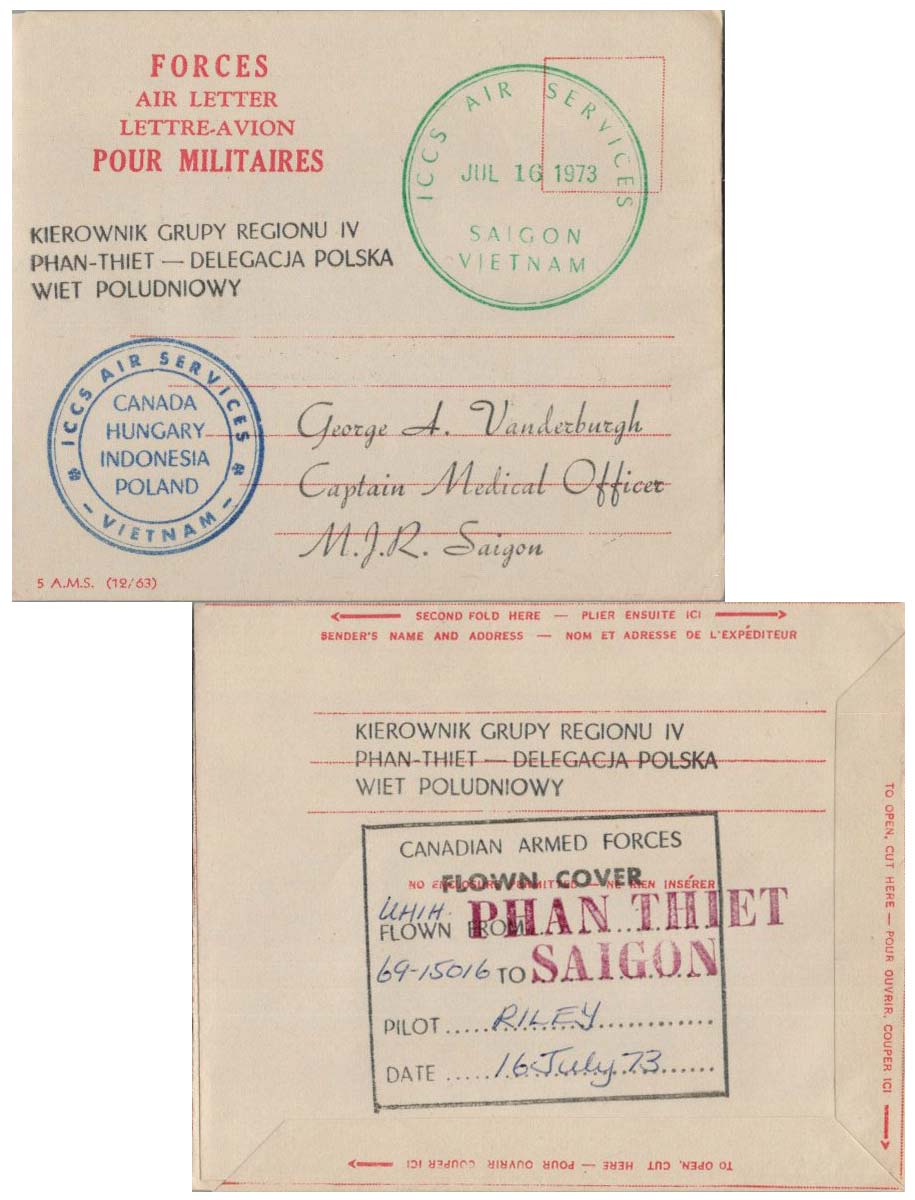 FORCES
AIR LETTER
LETTRE-AVION
POUR MILITAIRES
ICCS AIR SERVICES
JUL 16 1973
SAIGON
VIETNAM
KIEROWNIK GRUPY REGIONU IV
PHAN-THIET — DELEGACJA POLSKA
WIET POLUDNIOWY
ICCS AIR SERVICES
CANADA
HUNGARY
INDONESIA
POLAND
- VIETNAM -
George A. Vanderburgh
Captain Medical Officer
M.J.R. Saigon
5 A.M.S. (12/63)
SECOND FOLD HERE — PLIER ENSUITE ICI
SENDER'S NAME AND ADDRESS — NOM ET ADRESSE DE L'EXPÉDITEUR
KIEROWNIK GRUPY REGIONU IV
PHAN-THIET — DELEGACJA POLSKA
WIET POLUDNIOWY
CANADIAN ARMED FORCES
FLOWN COVER
NO ENCLOSURE PERMITTED — NE RIEN INSÉRER
UH1H.
FLOWN FROM PHAN THIET
69-15016 TO SAIGON
PILOT ..... RILEY
DATE ..... 16 July 73
TO OPEN, CUT HERE — POUR OUVRIR, COUPER ICI
TO OPEN, CUT HERE — POUR OUVRIR COUPER ICI